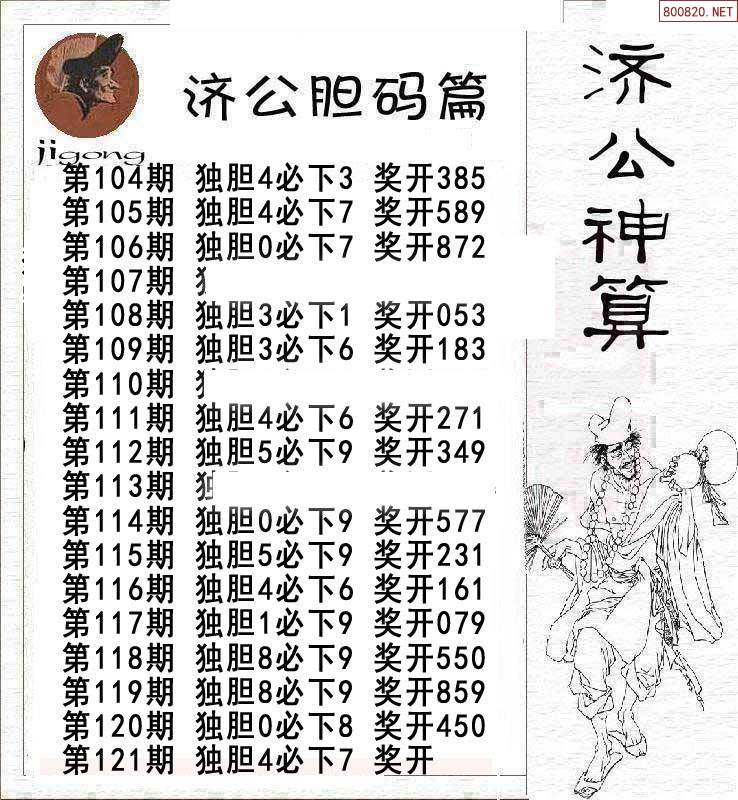 800820.NET
济公胆码篇
jigong
第104期 独胆4必下3 奖开385
第105期 独胆4必下7 奖开589
第106期 独胆0必下7 奖开872
第107期
第108期 独胆3必下1 奖开053
第109期 独胆3必下6 奖开183
第110期
第111期 独胆4必下6 奖开271
第112期 独胆5必下9 奖开349
第113期
第114期 独胆0必下9 奖开577
第115期 独胆5必下9 奖开231
第116期 独胆4必下6 奖开161
第117期 独胆1必下9 奖开079
第118期 独胆8必下9 奖开550
第119期 独胆8必下9 奖开859
第120期 独胆0必下8 奖开450
第121期 独胆4必下7 奖开
济公神算